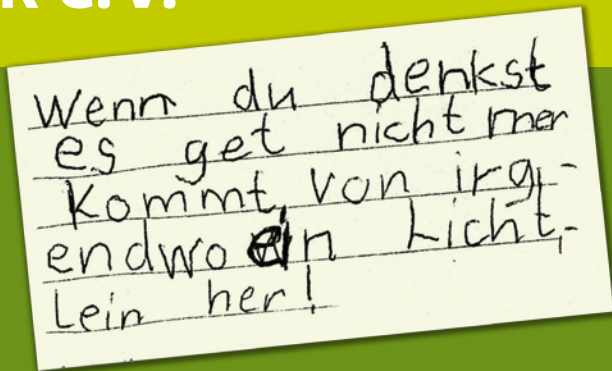 e. V.
Wenn du denkst
es get nicht mer
kommt, von irg-
endwo ein Licht-
lein her!